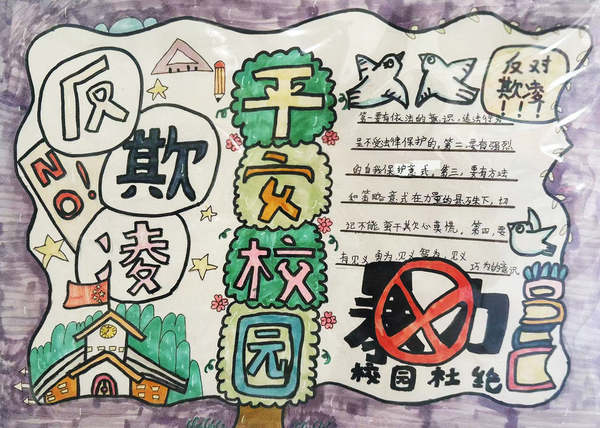 反
欺
凌
NO!
平
安
校
园
反对
欺凌
!!!
第一要有依法的意识,违法行为
是不受法律保护的,第二要有强烈
的自我保护意识,第三,要有方法
和策略意识在力量的悬殊下,切
记不能心慌,第四,要
有见义勇为,见义智为,见义
巧为的意识
暴力
校园杜绝